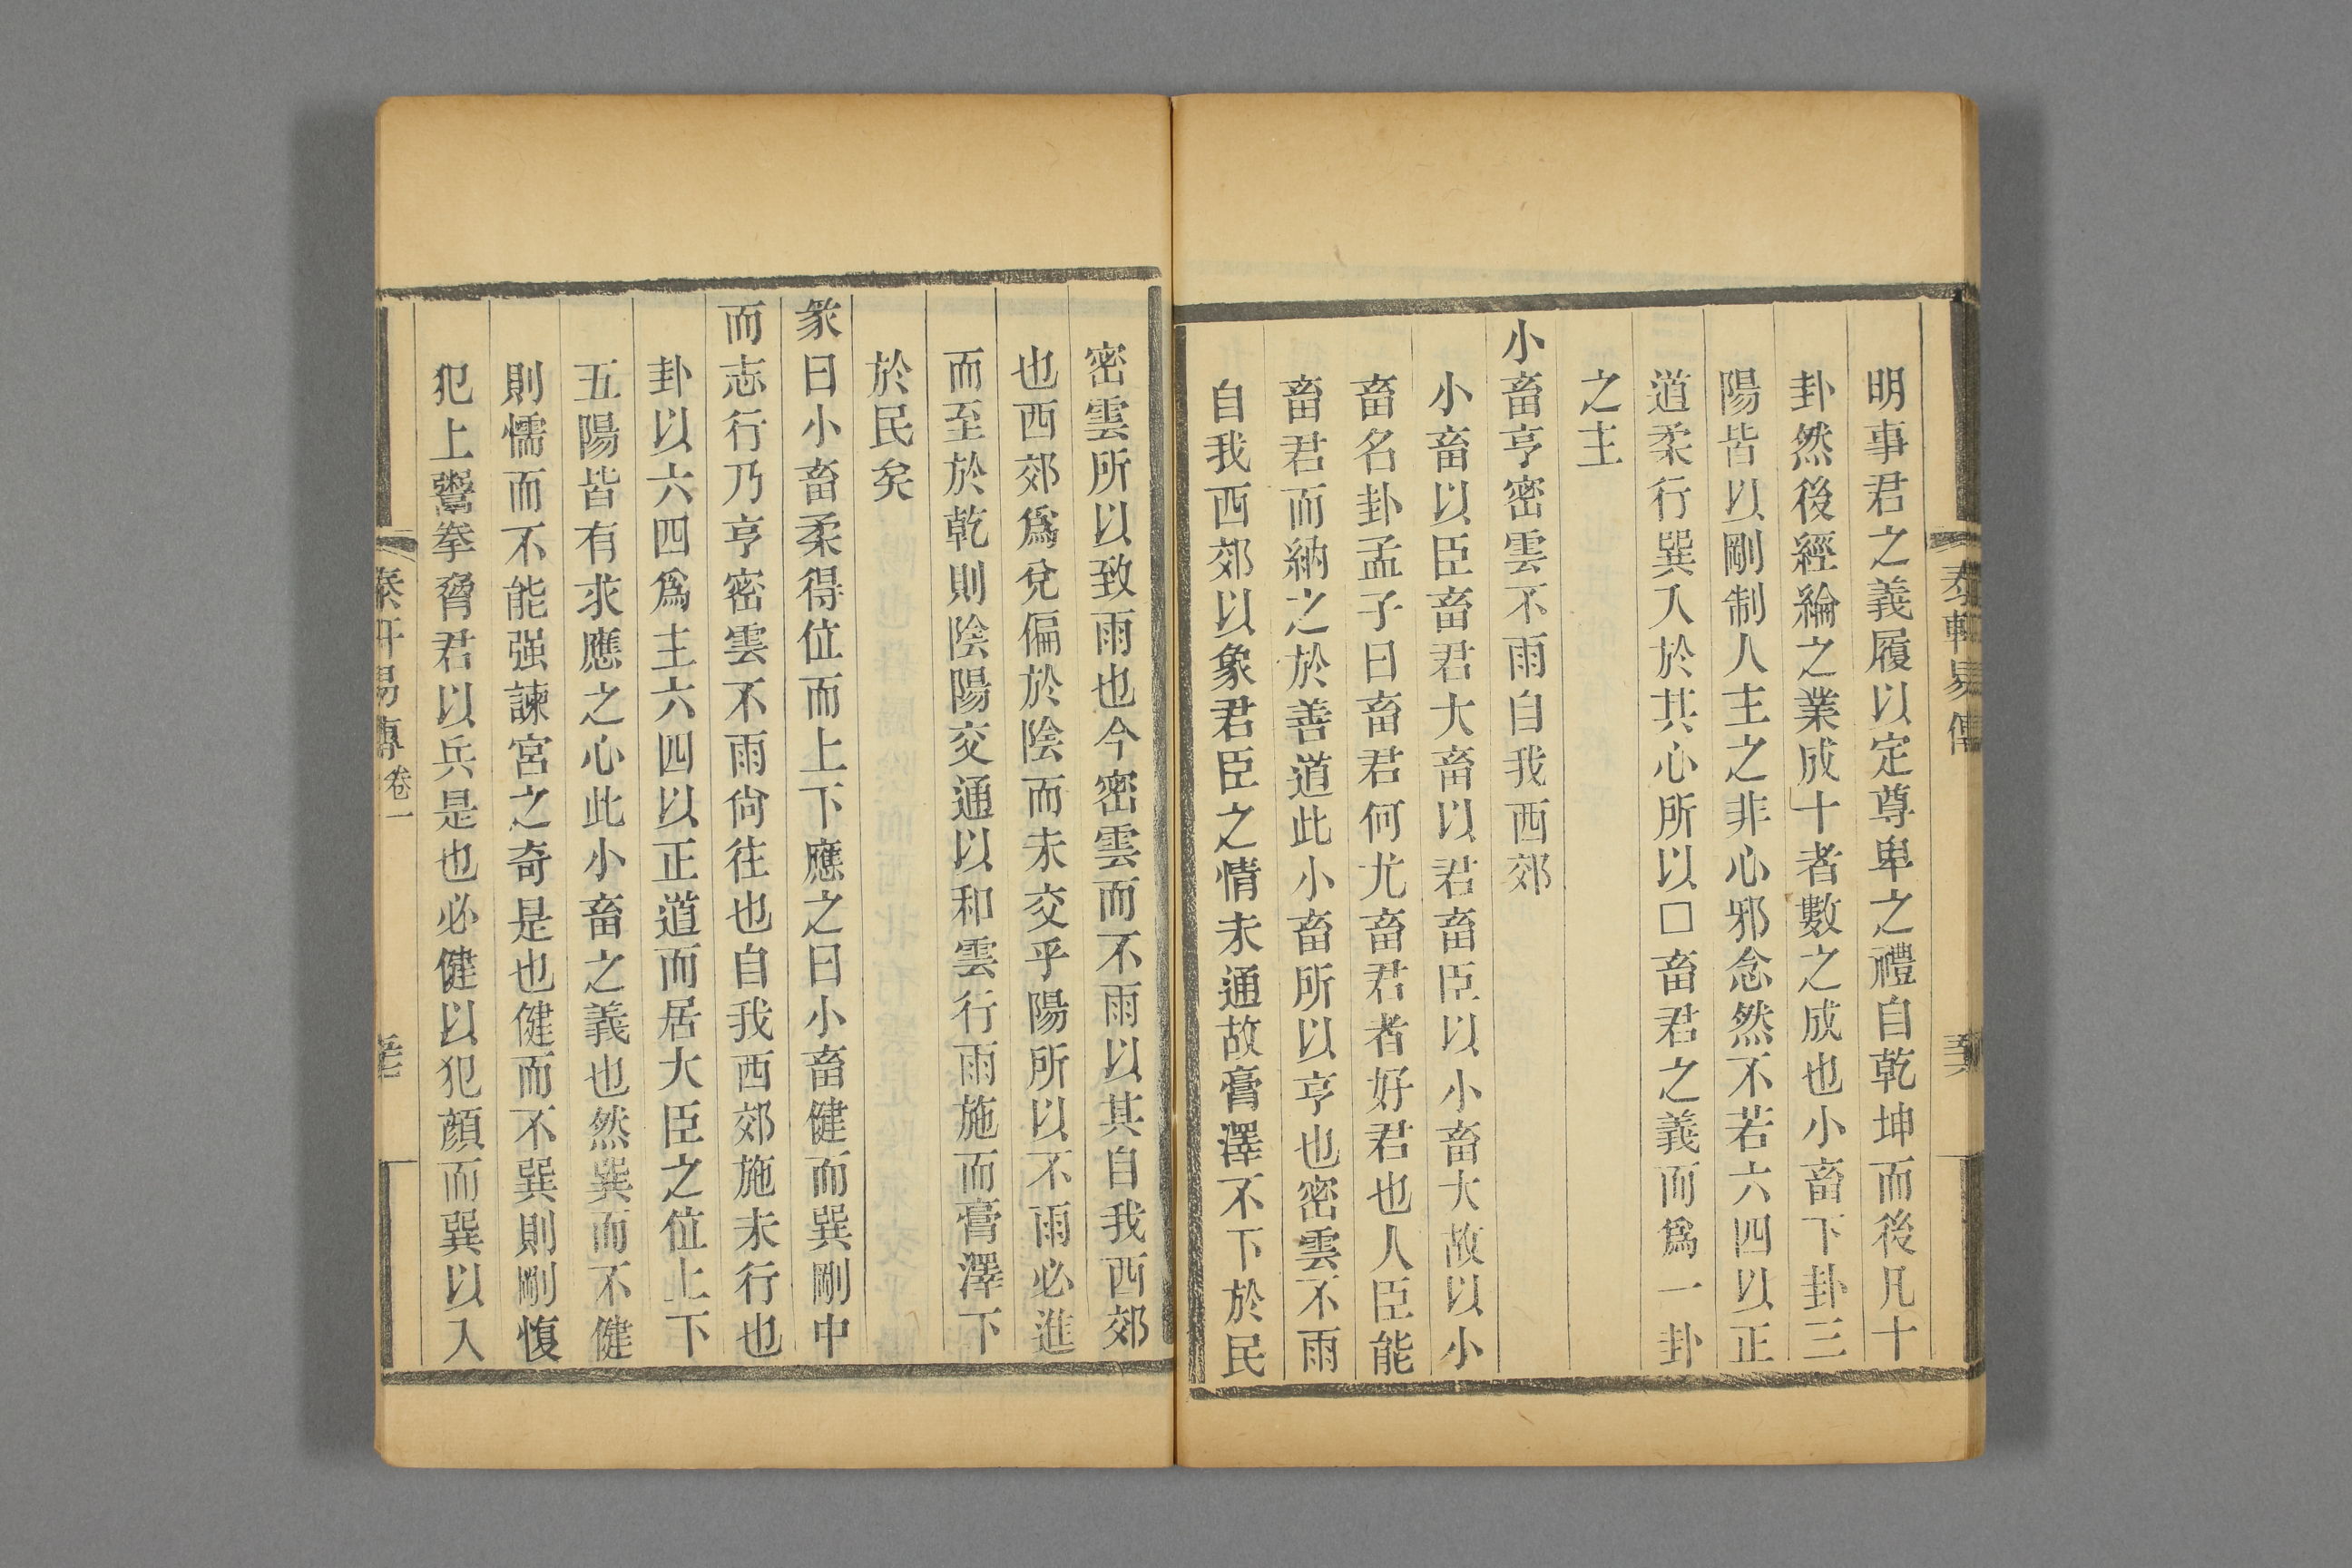 明事君之義履以定尊卑之禮自乾坤而後凡十
卦然後經綸之業成十者數之成也小畜下卦三
陽皆以剛制人主之非心邪念然不若六四以正
道柔行巽入於其心所以□畜君之義而爲一卦
之主
小畜亨密雲不雨自我西郊
小畜以臣畜君大畜以君畜臣以小畜大故以小
畜名卦孟子曰畜君何尤畜君者好君也人臣能
畜君而納之於善道此小畜所以亨也密雲不雨
自我西郊以象君臣之情未通故膏澤不下於民
密雲所以致雨也今密雲而不雨以其自我西郊
也西郊爲兌偏於陰而未交乎陽所以不雨必進
而至於乾則陰陽交通以和雲行雨施而膏澤下
於民矣
彖曰小畜柔得位而上下應之曰小畜健而巽剛中
而志行乃亨密雲不雨尙往也自我西郊施未行也
卦以六四爲主六四以正道而居大臣之位上下
五陽皆有求應之心此小畜之義也然巽而不健
則懦而不能强諫宮之奇是也健而不巽則剛愎
犯上鬻拳脅君以兵是也必健以犯顏而巽以入
易傳卷一